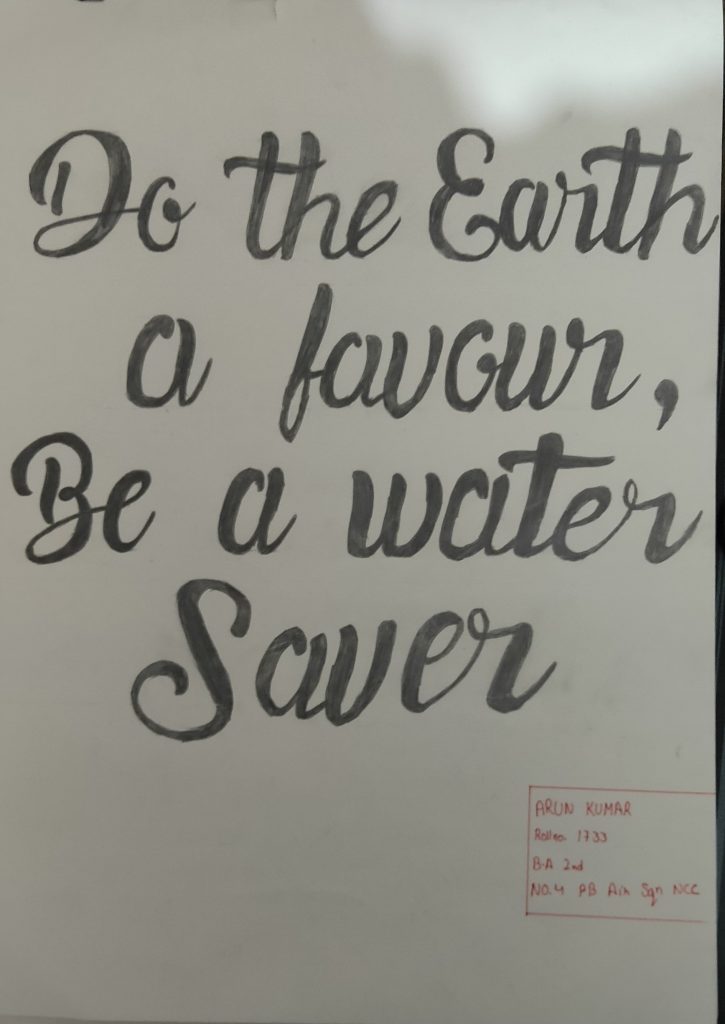 Do the Earth
a favour,
Be a water
Saver
ARUN KUMAR
Rollno. 1733
B.A 2nd
No.4 PB Air Sqn NCC